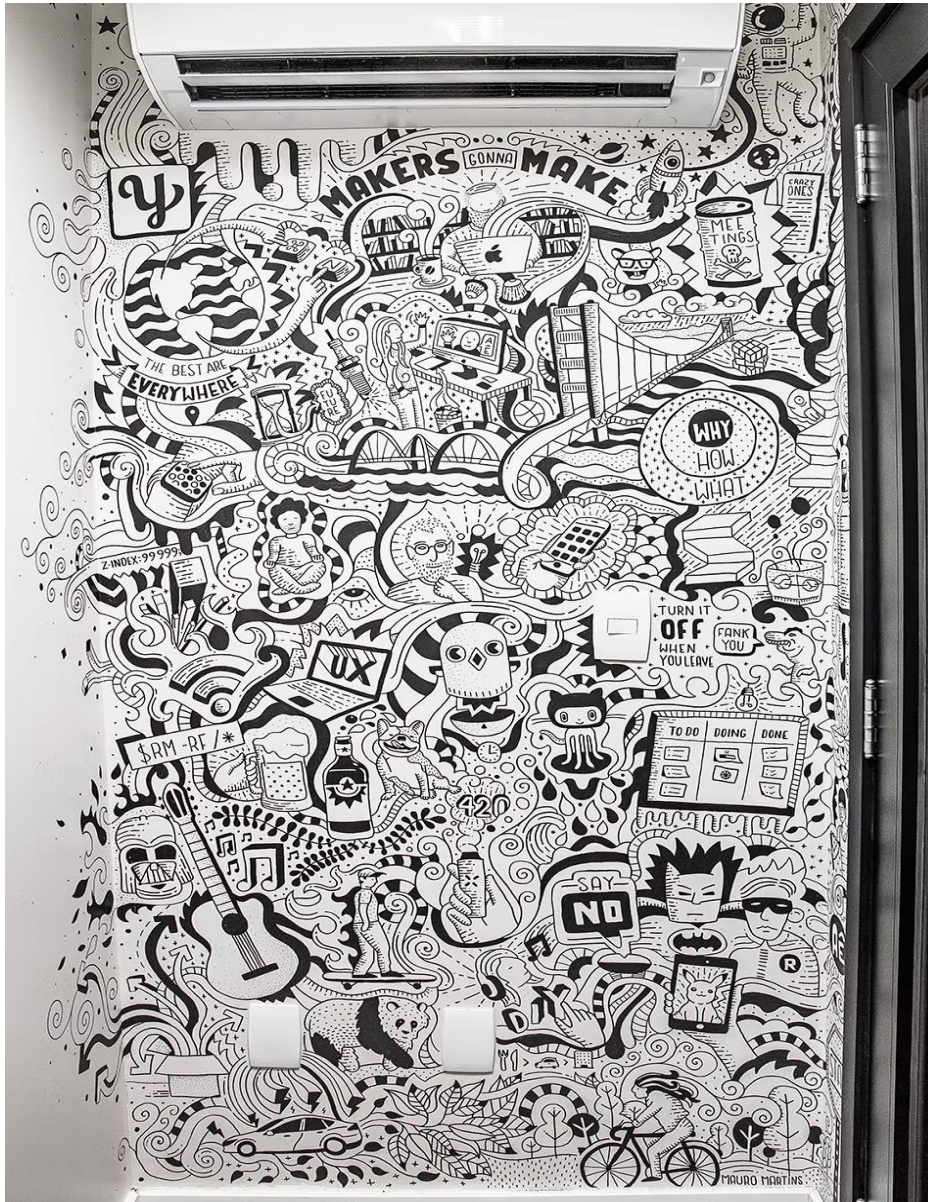 MAKERS GONNA MAKE
y
CRAZY
ONES
MEE
TINGS
THE BEST ARE
EVERYWHERE
FU
TU
RE
WHY
HOW
WHAT
Z-INDEX:99999;
TURN IT
OFF
WHEN
YOU LEAVE
FANK
YOU
UX
$RM -RF /*
TO DO
DOING
DONE
420
SAY
NO
R
DIY
MAURO MARTINS